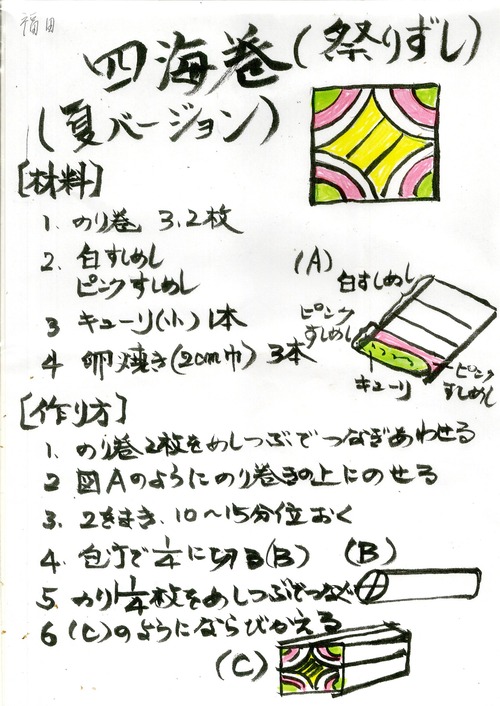 福田
四海巻(祭りずし)
(夏バージョン)
[材料]
1. のり巻 3.2枚
2. 白すしめし
ピンクすしめし
3 キューリ(小) 1本
4 卵焼き(2cm巾) 3本
(A)
白すしめし
ピンク
すしめし
キューリ
ピンク
すしめし
[作り方]
1. のり巻2枚をめしつぶでつなぎあわせる
2 図Aのようにのり巻きの上にのせる
3. 2をまき、10～15分位おく
4. 包丁で1/4に切る(B)
(B)
5 のり1 1/4枚をめしつぶでつなぐ
6 (C)のようにならびかえる
(C)